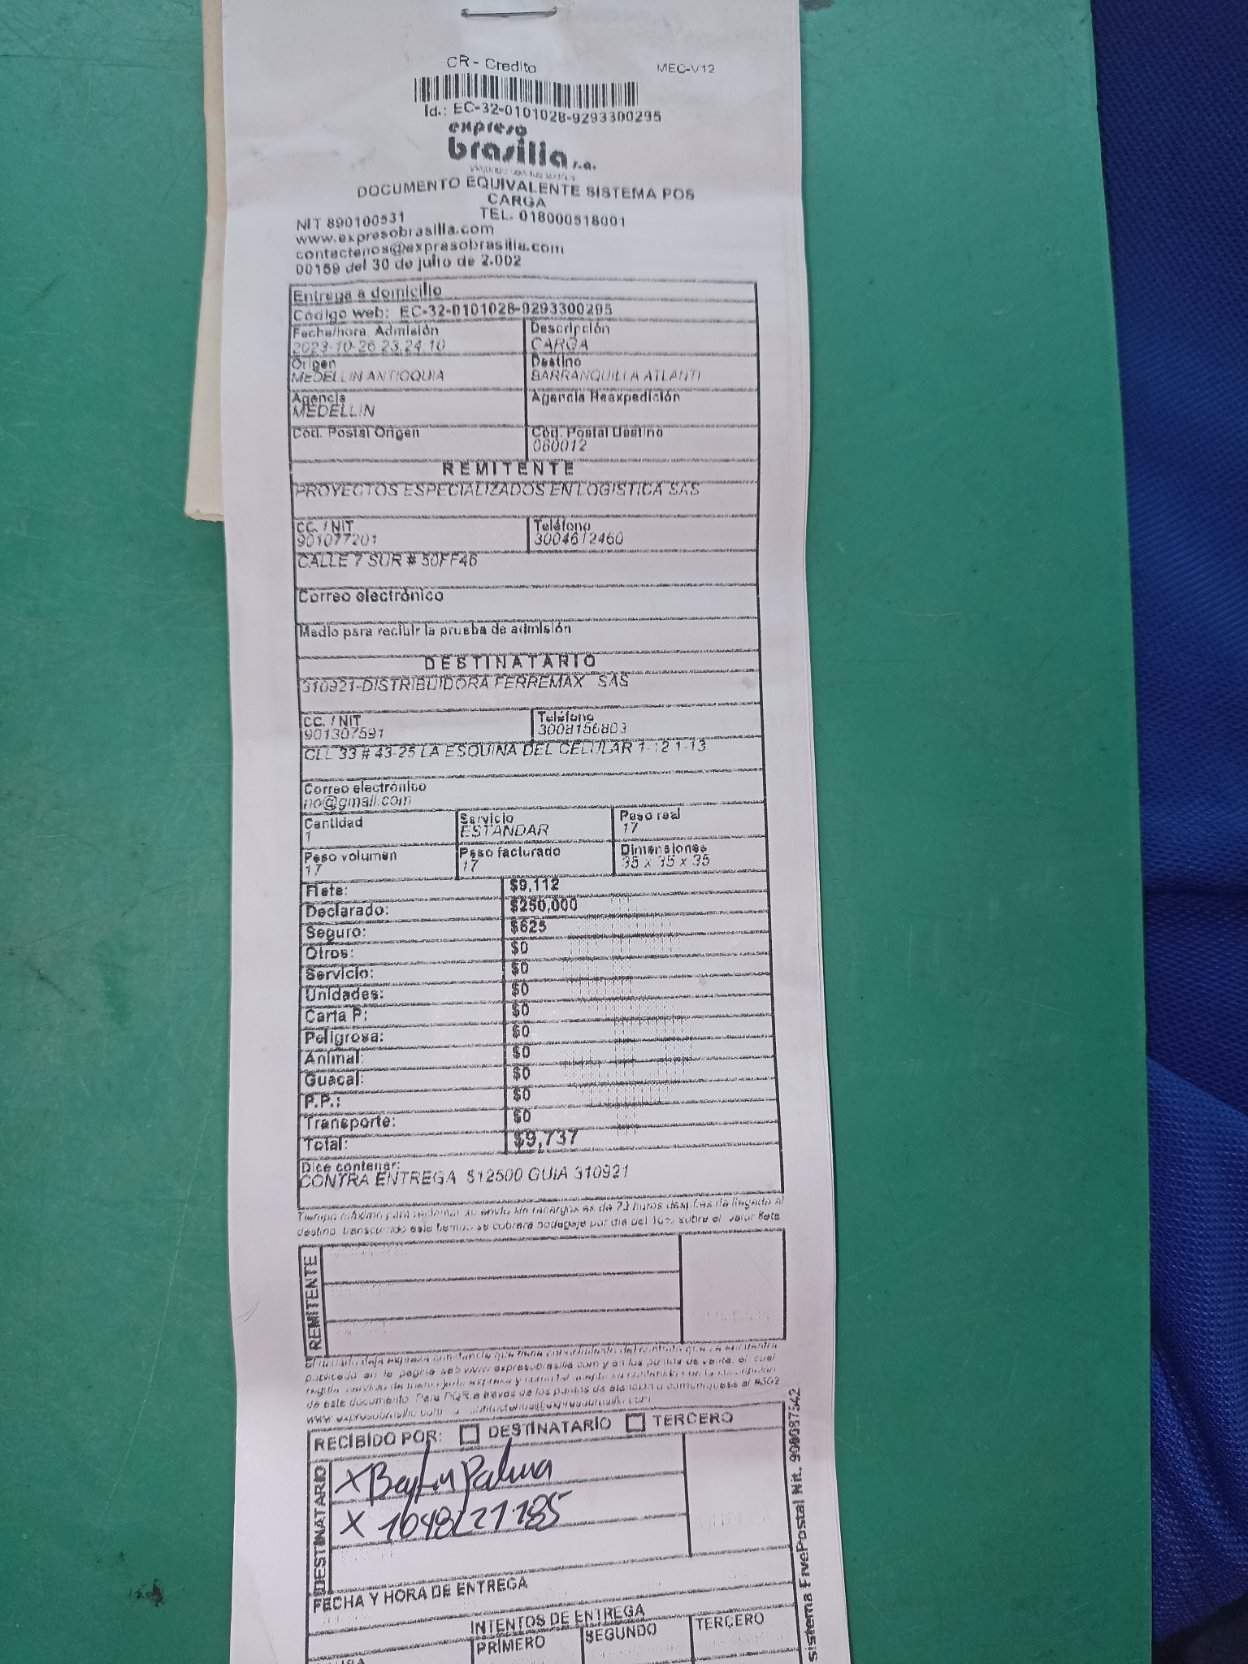 CR - Credito MEC-V12
Id.: EC-32-0101028-9293300295
expreso
brasilia s.a.
DOCUMENTO EQUIVALENTE SISTEMA POS
CARGA
NIT 890100531 TEL. 018000518001
www.expresobrasilia.com
contactenos@expresobrasilia.com
00159 del 30 de julio de 2.002
Entrega a domicilio
Código web: EC-32-0101028-9293300295
Fecha/hora Admisión Descripción
2023-10-26 23.24.10 CARGA
Origen Destino
MEDELLIN ANTIOQUIA BARRANQUILLA ATLANTI
Agencia Agencia Reexpedición
MEDELLIN
Cód. Postal Origen Cód. Postal Destino
080012
REMITENTE
PROYECTOS ESPECIALIZADOS EN LOGISTICA SAS
CC. / NIT Teléfono
901077201 3004612460
CALLE 7 SUR # 50FF46
Correo electrónico
Medio para recibir la prueba de admisión
DESTINATARIO
310921-DISTRIBUIDORA FERREMAX SAS
CC. / NIT Teléfono
901307591 3008156803
CLL 33 # 43-25 LA ESQUINA DEL CELULAR 1-12 1-13
Correo electrónico
no@gmail.com
Cantidad Servicio Peso real
1 ESTANDAR 17
Peso volumen Peso facturado Dimensiones
17 17 35 x 35 x 35
Flete: $9,112
Declarado: $250,000
Seguro: $625
Otros: $0
Servicio: $0
Unidades: $0
Carta P: $0
Peligrosa: $0
Animal: $0
Guacal: $0
P.P.: $0
Transporte: $0
Total: $9,737
Dice contener:
CONTRA ENTREGA $12500 GUIA 310921
Tiempo máximo para reclamar su envío sin recargos es de 72 horas después de llegado al
destino, transcurrido este tiempo se cobrará bodegaje por día del 10% sobre el valor flete
REMITENTE
publicado en la pagina web www.expresobrasilia.com y en los puntos de venta, el cual
de este documento. Para PQR a traves de los puntos de atención o comuniquese al #302
www.expresobrasilia.com o contactenos@expresobrasilia.com
RECIBIDO POR: DESTINATARIO TERCERO
DESTINATARIO
X Palma
X
FECHA Y HORA DE ENTREGA
INTENTOS DE ENTREGA
PRIMERO SEGUNDO TERCERO
sistema FivePostal Nit. 900087542